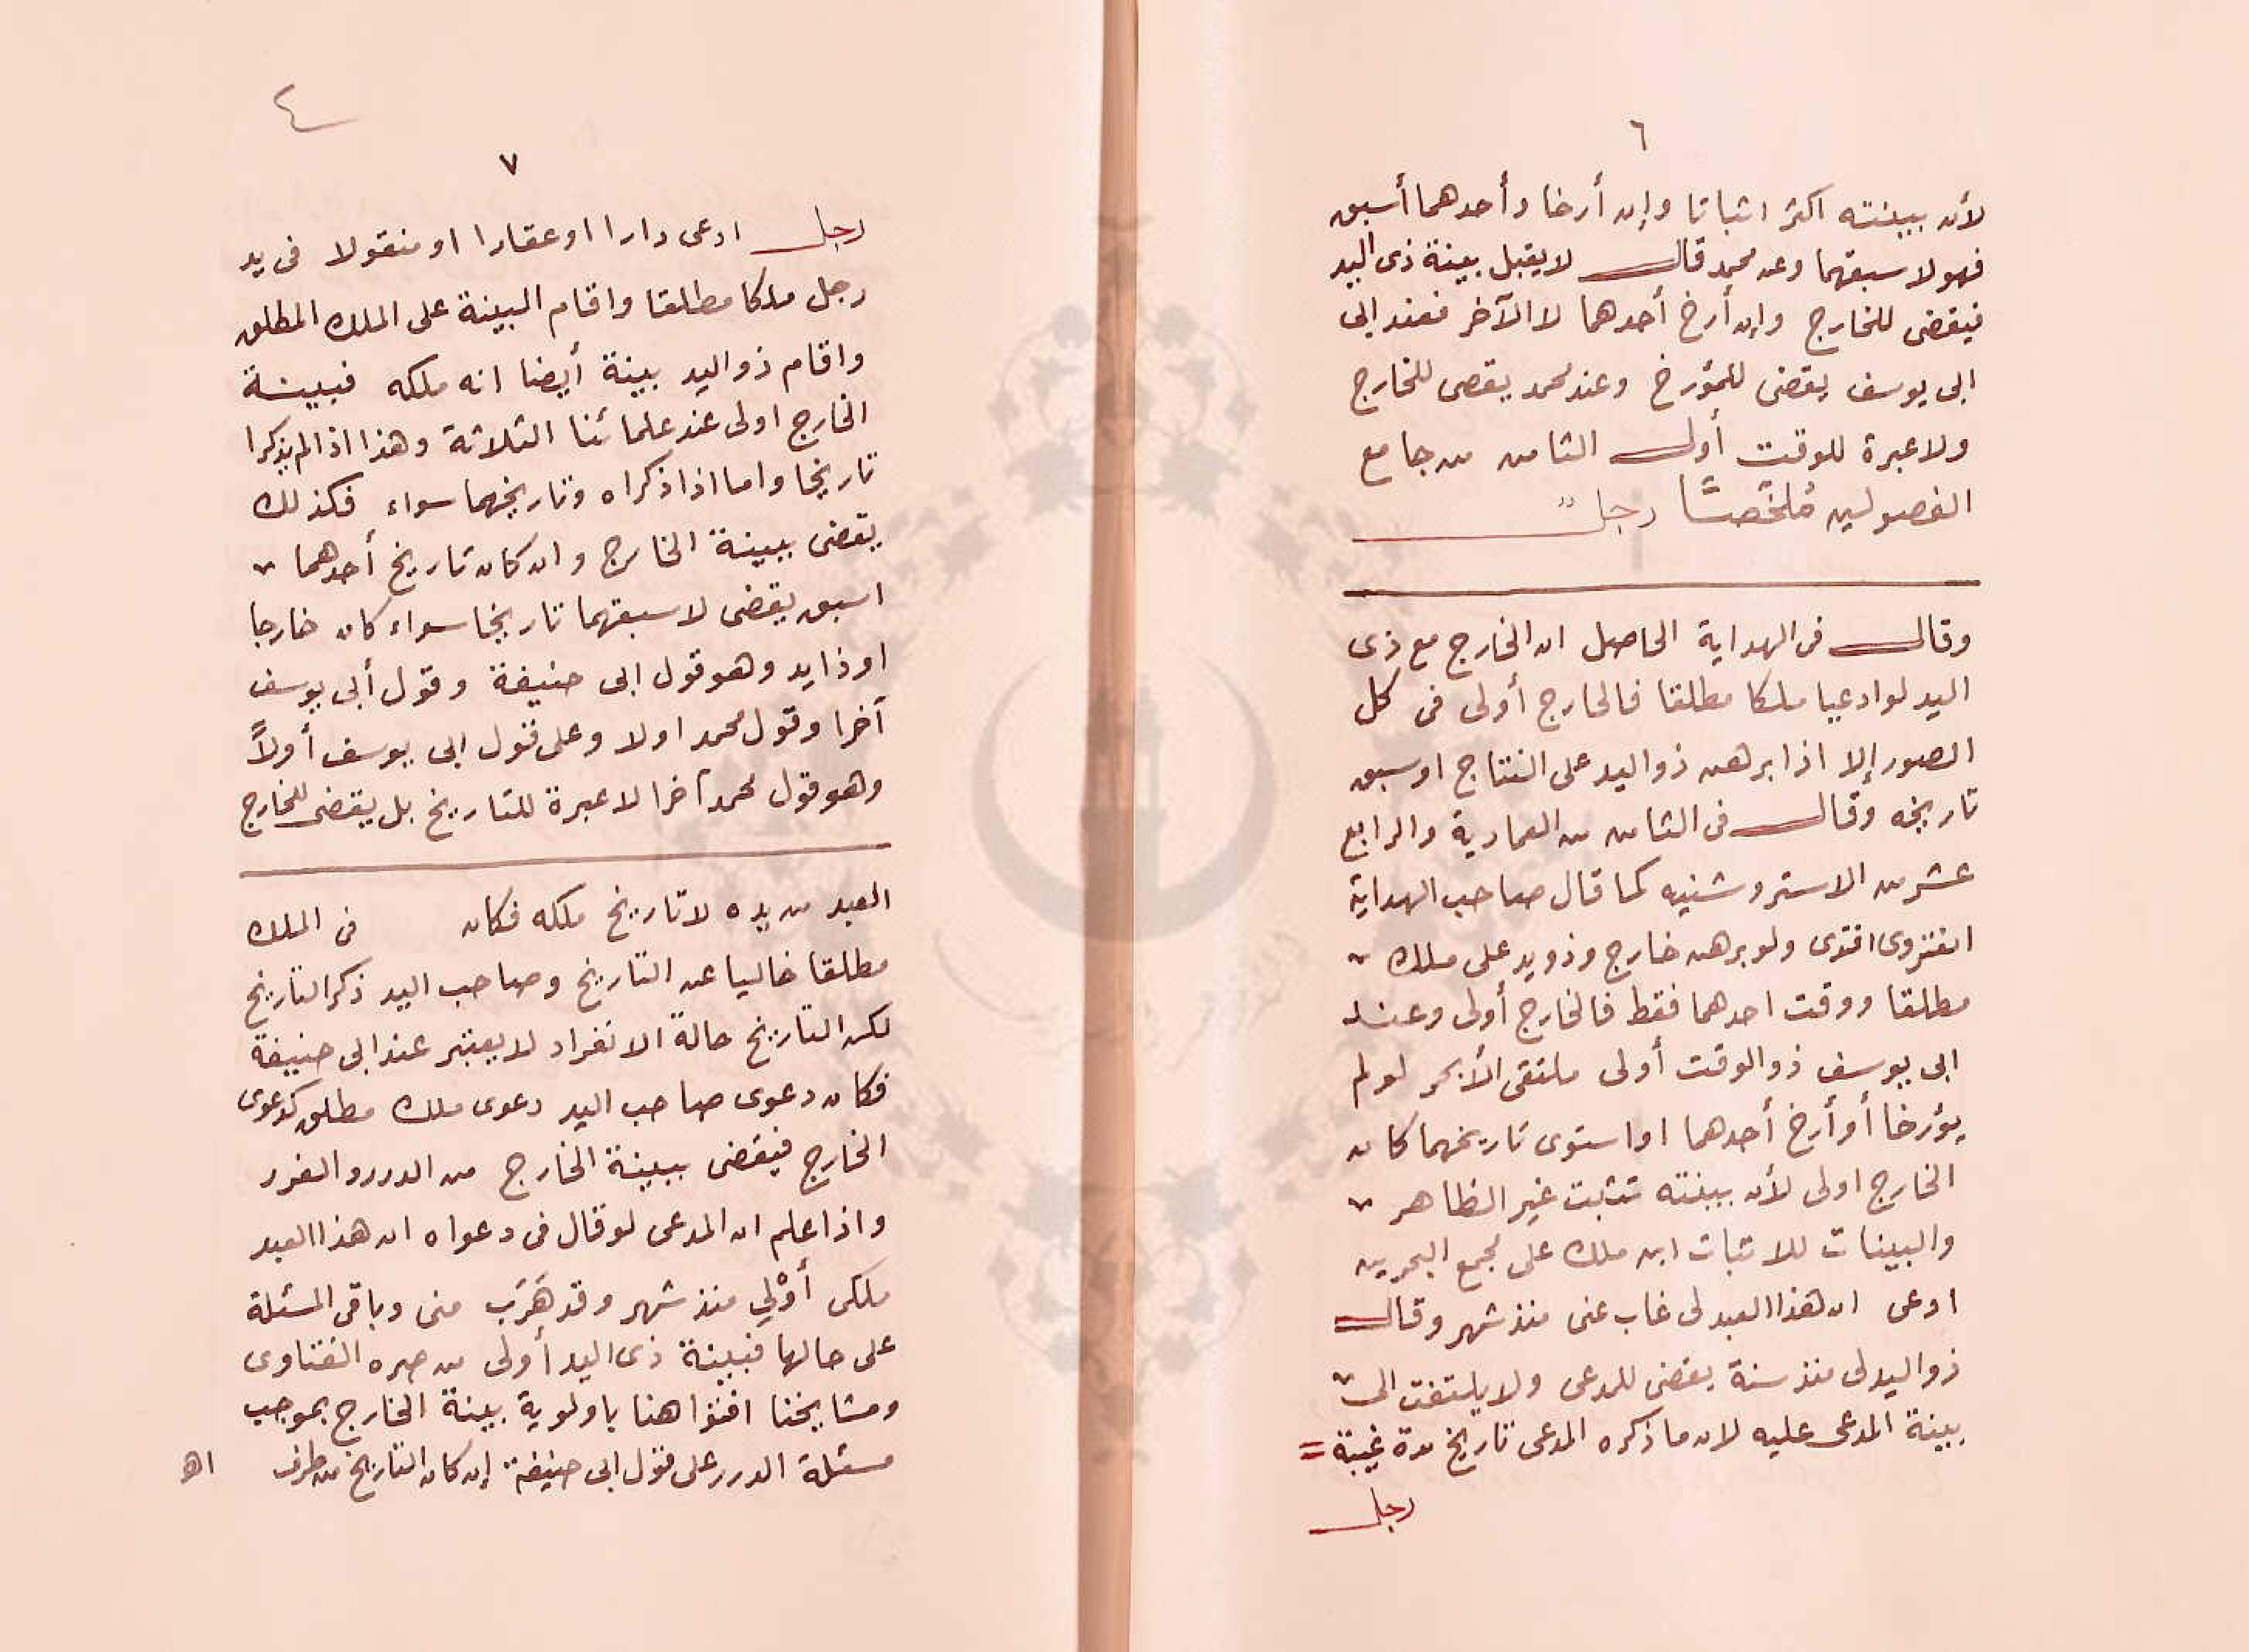 ٦
لأن ببينته اكثر اثباتا وإن أرخا وأحدهما أسبق
فهو لاسبقهما وعن محمد قال لا يقبل بينة ذى اليد
فيقضى للخارج وإن أرخ أحدهما لا الآخر فعند ابى
ابى يوسف يقضى للمؤرخ وعند محمد يقضى للخارج
ولا عبرة للوقت أول الثامن من جامع
الفصولين مُلخّصًا رجل
وقال فى الهداية الحاصل ان الخارج مع ذى
اليد لو ادعيا ملكا مطلقا فالخارج أولى فى كل
الصور إلا اذا برهن ذو اليد على النتاج او سبق
تاريخه وقال فى الثامن من العمادية والرابع
عشر من الاستروشنيه كما قال صاحب الهداية
انقروى افتدى ولو برهن خارج وذو يد على ملك
مطلقا ووقت احدهما فقط فالخارج أولى وعند
ابى يوسف ذو الوقت أولى ملتقى الأبحر لو لم
يؤرخا أو أرخ أحدهما او استوى تاريخهما كان
الخارج اولى لأن ببينته تثبت غير الظاهر
والبينات للاثبات ابن ملك على مجمع البحرين
ادعى ان هذا العبد لى غاب عنى منذ شهر وقال
ذو اليد لى منذ سنة يقضى للمدعى ولا يلتفت الى
بينة المدعى عليه لان ما ذكره المدعى تاريخ مدة غيبة
رجل
٤
٧
رجل ادعى دارا او عقارا او منقولا فى يد
رجل ملكا مطلقا واقام البينة على الملك المطلق
واقام ذو اليد بينة أيضا انه ملكه فبينة
الخارج اولى عند علمائنا الثلاثة وهذا اذا لم يذكرا
تاريخا واما اذا ذكراه وتاريخهما سواء فكذلك
يقضى ببينة الخارج وان كان تاريخ أحدهما
اسبق يقضى لاسبقهما تاريخا سواء كان خارجا
او ذا يد وهو قول ابى حنيفة وقول أبى يوسف
آخرا وقول محمد اولا وعلى قول ابى يوسف أولاً
وهو قول محمد آخرا لا عبرة للتاريخ بل يقضى للخارج
العبد من يده لا تاريخ ملكه فكان فى الملك
مطلقا خاليا عن التاريخ وصاحب اليد ذكر التاريخ
لكن التاريخ حالة الانفراد لا يعتبر عند ابى حنيفة
فكان دعوى صاحب اليد دعوى ملك مطلق كدعوى
الخارج فيقضى ببينة الخارج من الدرر والغرر
واذا علم ان المدعى لو قال فى دعواه ان هذا العبد
ملكى أوْلي منذ شهر وقد هَرَب منى وباقى المسئلة
على حالها فبينة ذى اليد أولى من صره الفتاوى
ومشايخنا افتوا هنا باولوية بينة الخارج بموجب
مسئلة الدرر على قول ابى حنيفة إن كان التاريخ من طرف اهـ